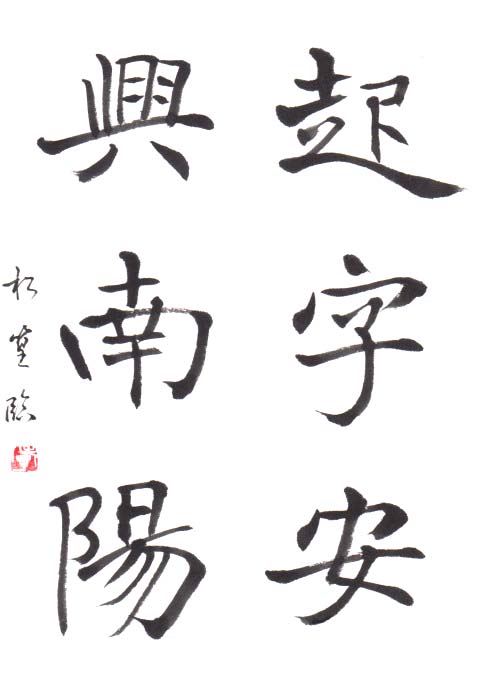 起字安
興南陽
松臨